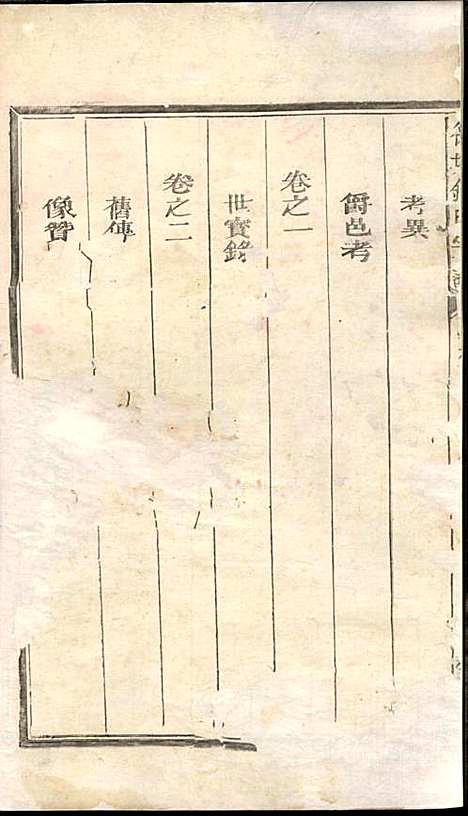 考異
爵邑考
卷之一
世實錄
卷之二
舊傳
像贊